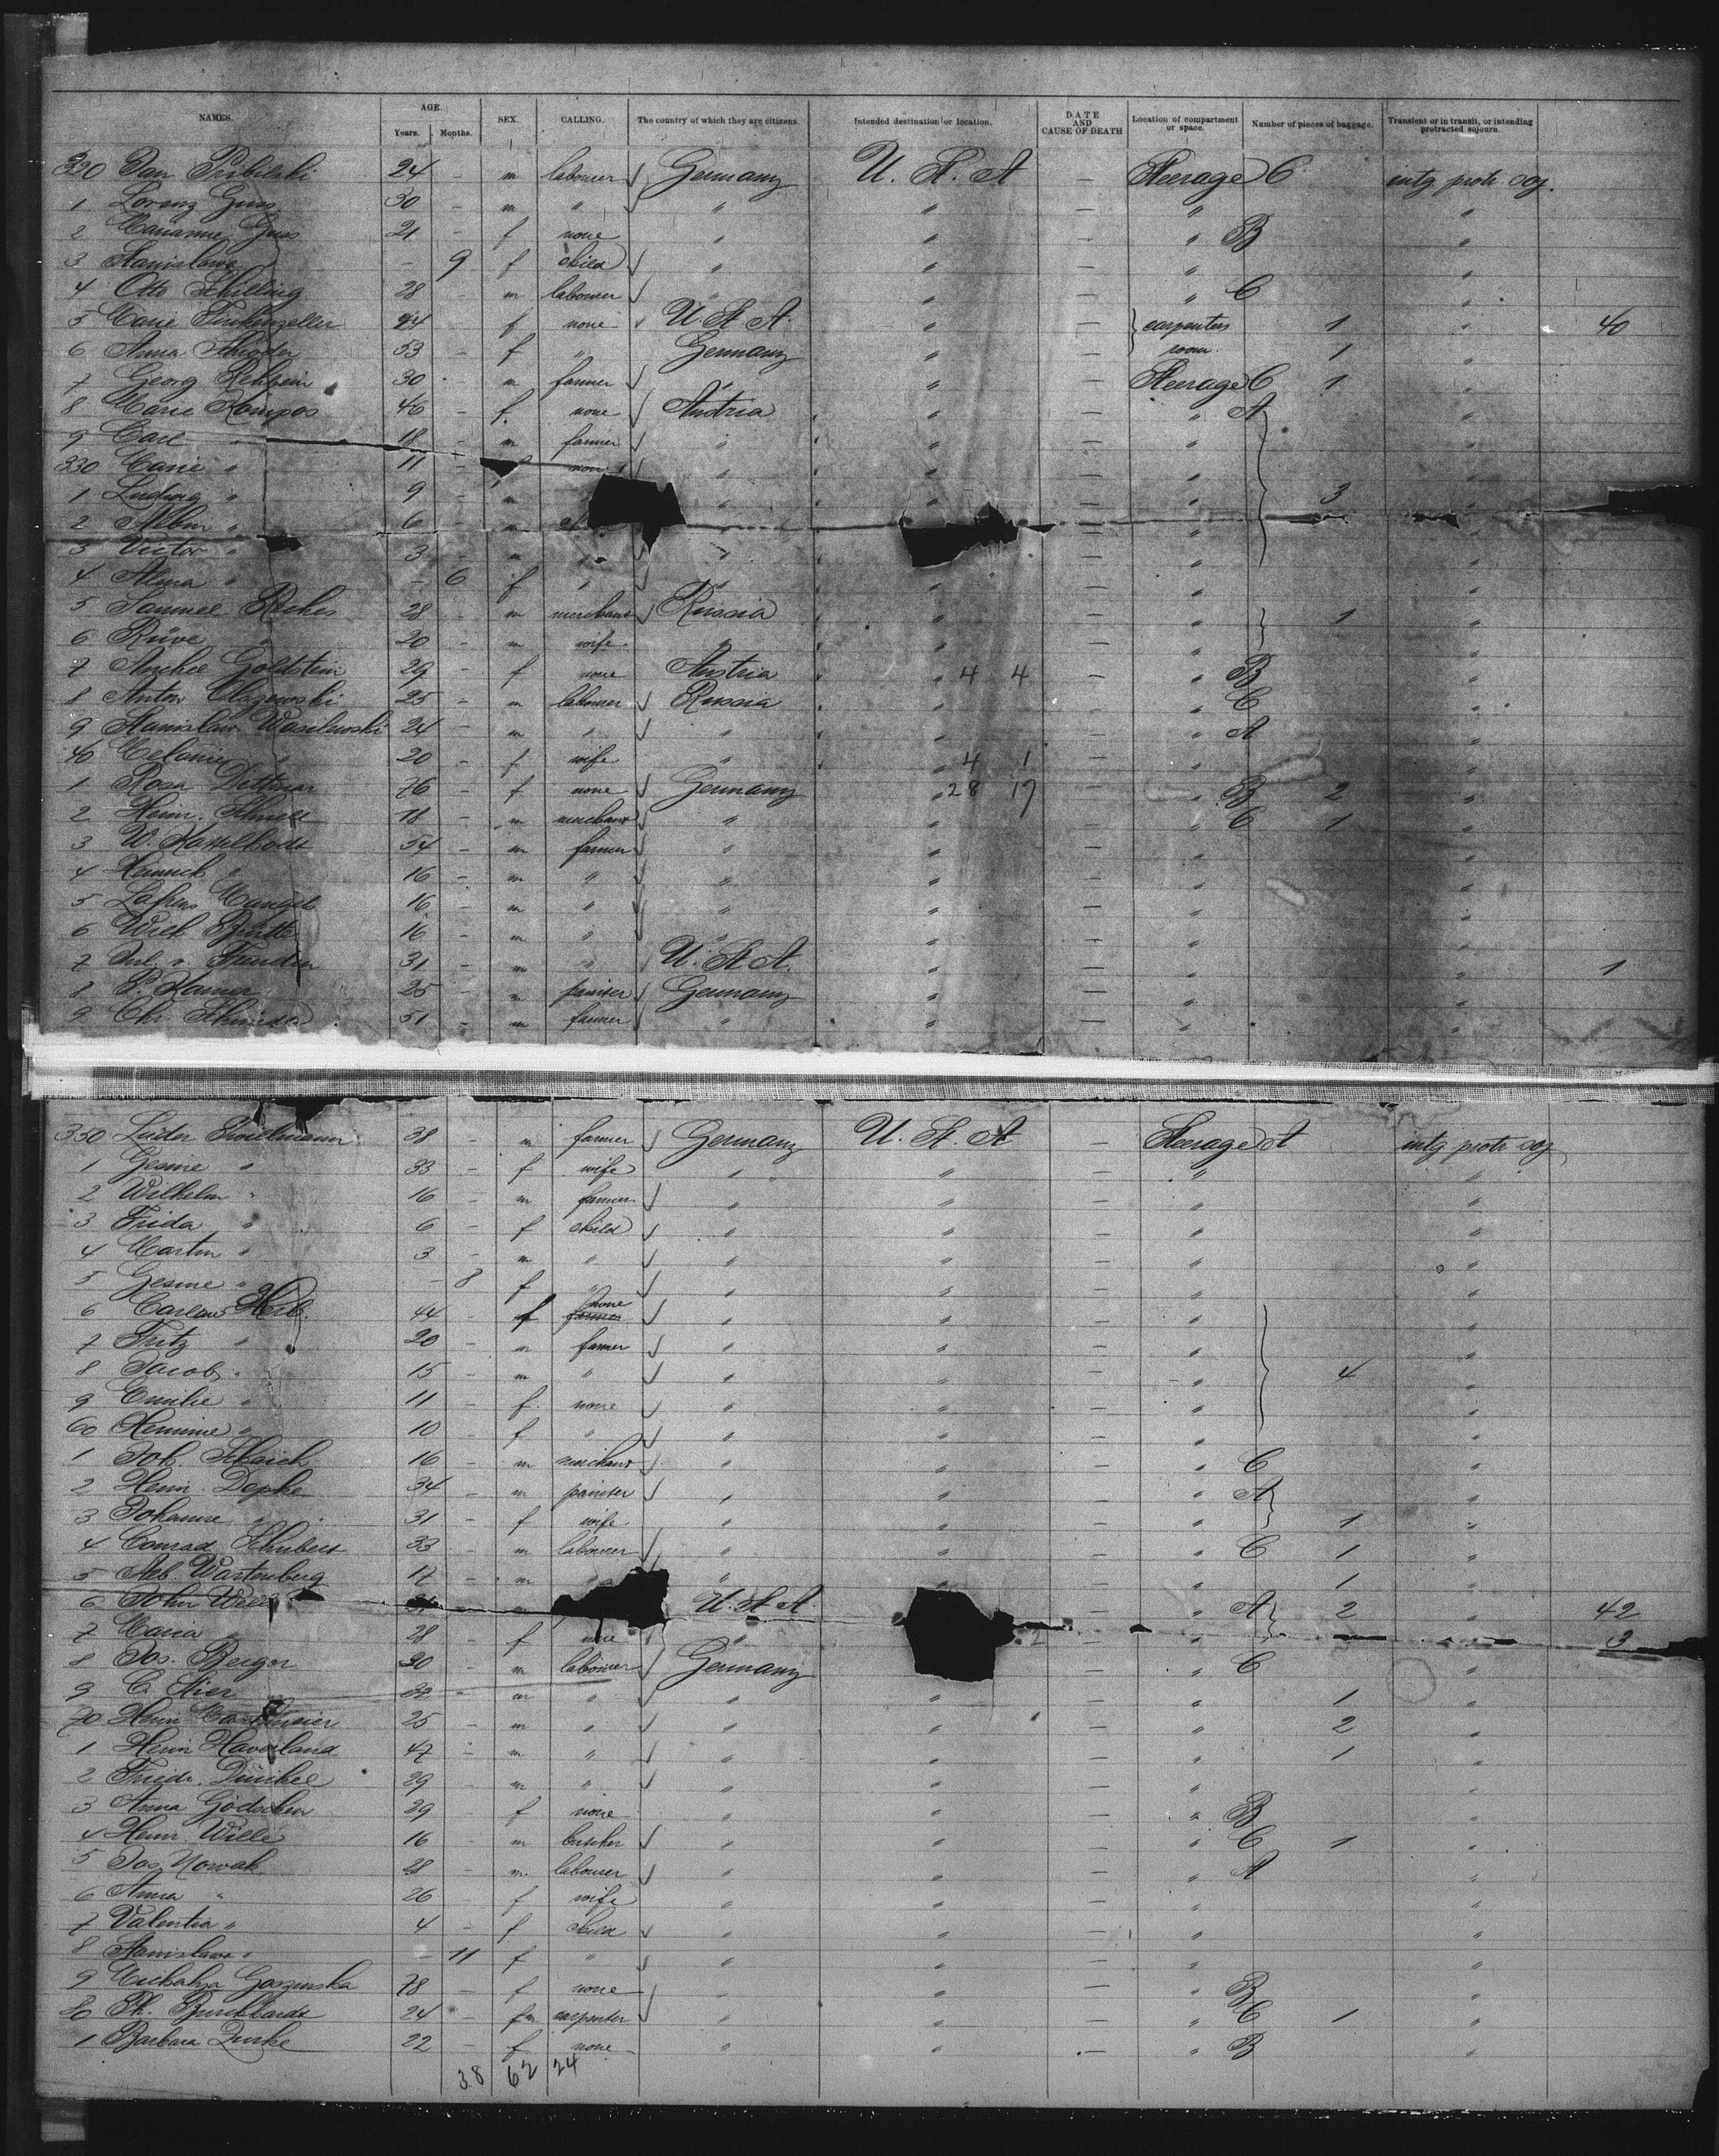 NAMES. AGE. Years. Months. SEX. CALLING. The country of which they are citizens. Intended destination or location. DATE AND CAUSE OF DEATH Location of compartment or space. Number of pieces of baggage. Transient or in transit, or intending protracted sojourn.
320 24 - m labourer Germany U. S. A - Steerage C intg protr soj.
1 Lorenz Guss 30 - m " " " - " "
2 Marianne Guss 21 - f none " " - " B "
3 Stanislawa - 9 f child " " - " "
4 Otto Schilling 28 - m labourer " " - " C "
5 Marie 44 - f none U. S. A. " - carpenters 1 " 40
6 Anna Schröder 53 - f " Germany " - room 1 "
7 Georg Rehbein 30 - m farmer " " - Steerage C 1 "
8 Marie Kompos 46 - f. none Austria " - " A "
9 Carl " 18 - m farmer " " - " "
330 Marie " 11 - f none " " - " "
1 Ludwig " 9 - m " " - " 3 "
2 Albin " 6 - m " - " "
3 Victor " 3 - m " " - " "
4 Alma " - 6 f " " " - " "
5 Samuel Reches 28 - m merchant Russia " - " 1 "
6 Rüve " 20 - m wife " " - " "
7 Goldstein 29 - f none Austria " 4 4 - " B "
8 Anton 25 - m labourer Russia " - " C "
9 Stanislaw Wasilewski 24 - m " " " - " A "
40 Melanie " 20 - f wife " " 4 1 - " "
1 Rosa Dittmar 76 - f none Germany " 28 17 - " B 2 "
2 Heinr. 18 - m merchant " " - " C 1 "
3 W. Hasselbode 54 - m farmer " " - " "
4 Heinrich " 16 - m " " " - " "
5 Mangels 16 - m " " " - " "
6 16 - m " " " - " "
7 31 - m " U. S. A. " - " " 1
8 25 - m painter Germany " - " "
9 Chr. Schröder 51 - m farmer " " - " "
350 Lüder 38 m farmer Germany U. S. A - Steerage A intg protr soj
1 Gesine " 33 - f wife " " - " "
2 Wilhelm " 16 - m farmer " " - " "
3 Frida " 6 - f child " " - " "
4 Martin " 3 - m " " " - " "
5 Gesine " - 8 f " " " - " "
6 44 - f none " " - " "
7 Fritz " 20 - m farmer " " - " "
8 Jacob " 15 - m " " " - " 4 "
9 Emilie " 11 - f. none " " - " "
60 Hermine " 10 - f " " " - " "
1 Joh. Schaich 16 - m merchant " " - " C "
2 Heinr. Depke 34 - m painter " " - " A "
3 Johanne " 31 - f wife " " - " 1 "
4 Conrad Schubert 33 - m labourer " " - " C 1 "
5 Alb. Wartenberg 17 - m " " " - " 1 "
6 John U. S. A. - " A 2 " 42
7 Maria " 28 - f none " - " " 3
8 Jos. Berger 30 - m labourer Germany - " C "
9 C. Stier 32 - m " " " - " 1 "
70 Heinr 25 - m " " " - " 2 "
1 Heinr Haverland 47 - m " " " - " 1 "
2 Friedr. Dünkel 29 - m " " " - " "
3 Anna Gödschen 29 - f none " " - " B "
4 Heinr. Wille 16 - m butcher " " - " C 1 "
5 Jos Nowak 28 - m. labourer " " - " A "
6 Anna " 26 - f wife " " - " "
7 Valentia " 4 - f. child " " - " "
8 Stanislawa " - 11 f " " " - " "
9 78 - f none " " - " B "
80 Ph. Burckhardt 24 - m carpenter " " - " C 1 "
1 Barbara 22 - f none " " - " B "
38 62 24